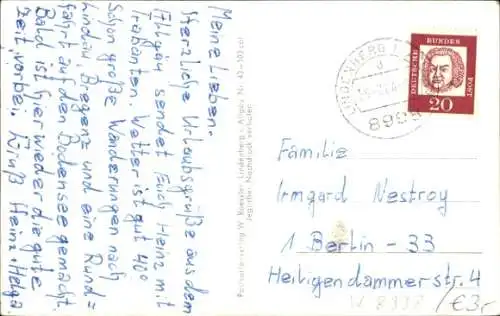 Meine Lieben.
Herzliche Urlaubsgrüße aus dem
Allgäu sendet Euch Heinz mit
Trabanten. Wetter ist gut 40°
Schon große Wanderungen nach
Lindau, Bregenz und eine Rund=
fahrt auf den Bodensee gemacht.
Bald ist hier wieder die gute
Zeit vorbei. Gruß Heinz, Helga
Postkartenverlag W. Lindenberg i. Allgäu Nr. 43-103 col
Jeglicher Nachdruck verboten
LINDENBERG I
d
8998
DEUTSCHE BUNDES
1804
20
Familie
Irmgard Nestroy
1 Berlin - 33
Heiligendammerstr. 4
/€3,-